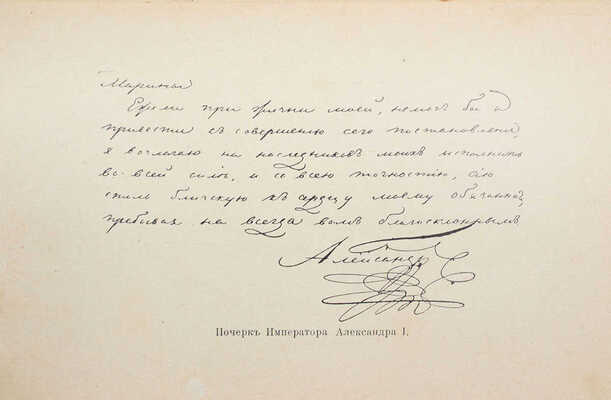 Марины
Ежели при жизни моей, немогъ бы я
привести съ совершенію сего постановленія,
я возлагаю на наследниковъ моихъ исполнить
во всей силѣ, и со всею точностію, сію
столь близкую къ сердцу моему обязанность,
пребывая на всегда вамъ благосклоннымъ
Александръ
Почеркъ Императора Александра I.